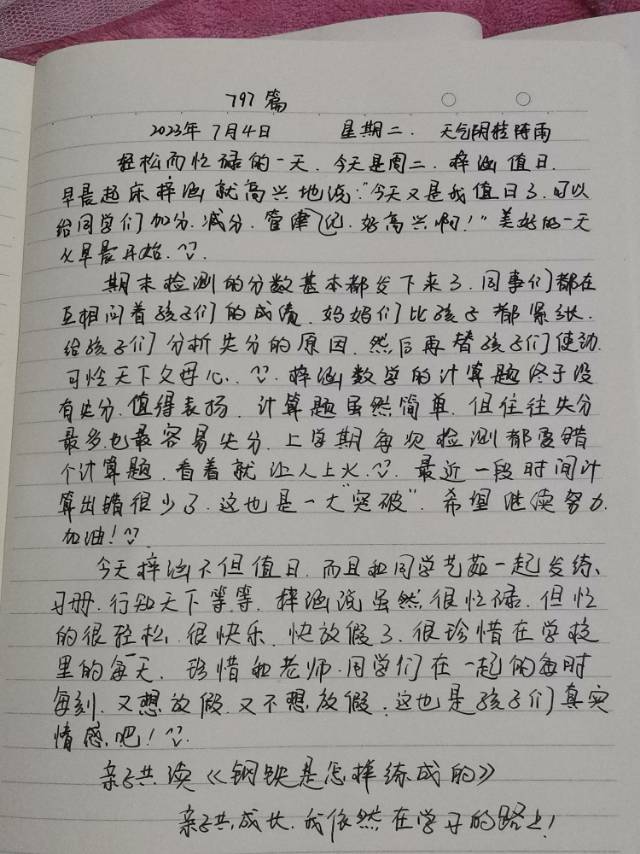 797篇
2023年7月4日 星期二. 天气阴转阵雨
轻松而忙碌的一天. 今天是周二. 梓涵值日.
早晨起床梓涵就高兴地说:"今天又是我值日了.可以
给同学们加分.减分.管律纪.好高兴啊!"美好的一天
从早晨开始.
期末检测的分数基本都发下来了.同事们都在
互相问着孩子们的成绩.妈妈们比孩子都紧张.
给孩子们分析失分的原因.然后再替孩子们使劲.
可怜天下父母心. 梓涵数学的计算题终于没
有失分.值得表扬.计算题虽然简单.但往往失分
最多也最容易失分.上学期每次检测都要错
个计算题.看着就让人上火. 最近一段时间计
算出错很少了.这也是一大"突破".希望继续努力.
加油!
今天梓涵不但值日.而且和同学艺茹一起发练
习册.行知天下等等.梓涵说虽然很忙碌.但忙
的很轻松.很快乐.快放假了.很珍惜在学校
里的每一天.珍惜和老师.同学们在一起的每时
每刻.又想放假.又不想放假.这也是孩子们真实
情感吧!
亲子共读《钢铁是怎样练成的》
亲子共成长.我依然在学习的路上!